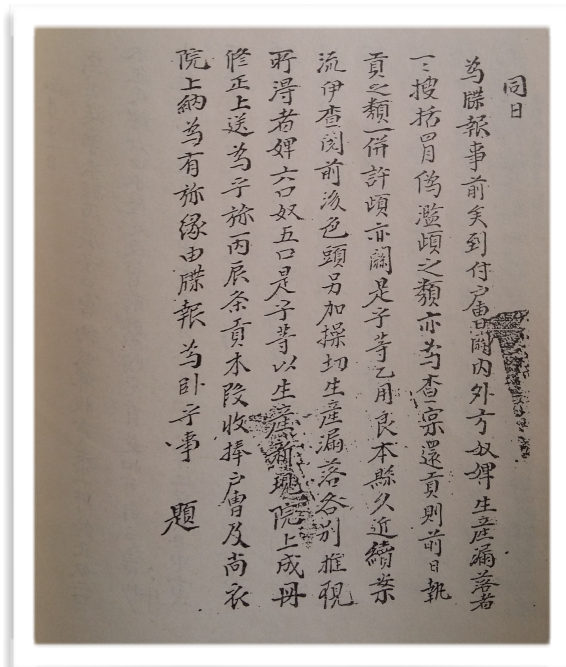 同日
爲牒報事前矣到付 曹關內外方奴婢生産漏落者
一一搜括冒僞濫頉之類亦爲査稟還貢則前日執
貢之類一倂許頉亦關是乎等乙用良本縣久近續案
流伊查閱前後色頭另加操切生産漏落各別推現
所得者婢六口奴五口是乎等以生産新現院上成冊
修正上送爲乎旀丙辰条貢木段收捧戶曹及尚衣
院上納爲有旀緣由牒報爲卧乎事 題